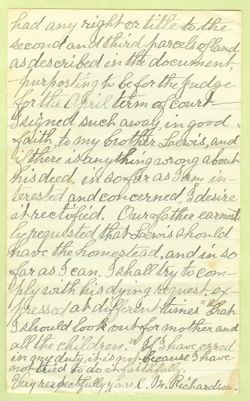 had any right or title to the
second and third parcels of land
as described in the document,
purporting to be for the Judge
for the April term of court
I signed such away, in good
faith, to my brother Lewis, and
if there is anything wrong about
this deed, in so far as I am in-
terested and concerned, I desire
it rectified. Our father earnest-
ly requested that Lewis should
have the homestead, and in so
far as I can, I shall try to com-
ply with his dying request, ex-
pressed at different times "that
I should look out for mother and
all the children." If I have erred
in my duty, it is not because I have
not tried to do it faithfully.
Very respectfully yours C. M. Richardson.